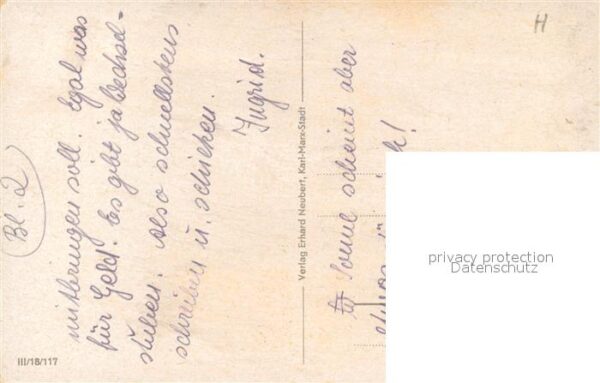 Bl. 2
mitbringen soll. Egal was
für Geld. Es gibt ja Wechsel-
stuben. Also schnellstens
schreiben u. schicken.
Ingrid.
Verlag Erhard Neubert, Karl-Marx-Stadt
H
Sonne scheint aber
etwas
privacy protection
Datenschutz
III/18/117